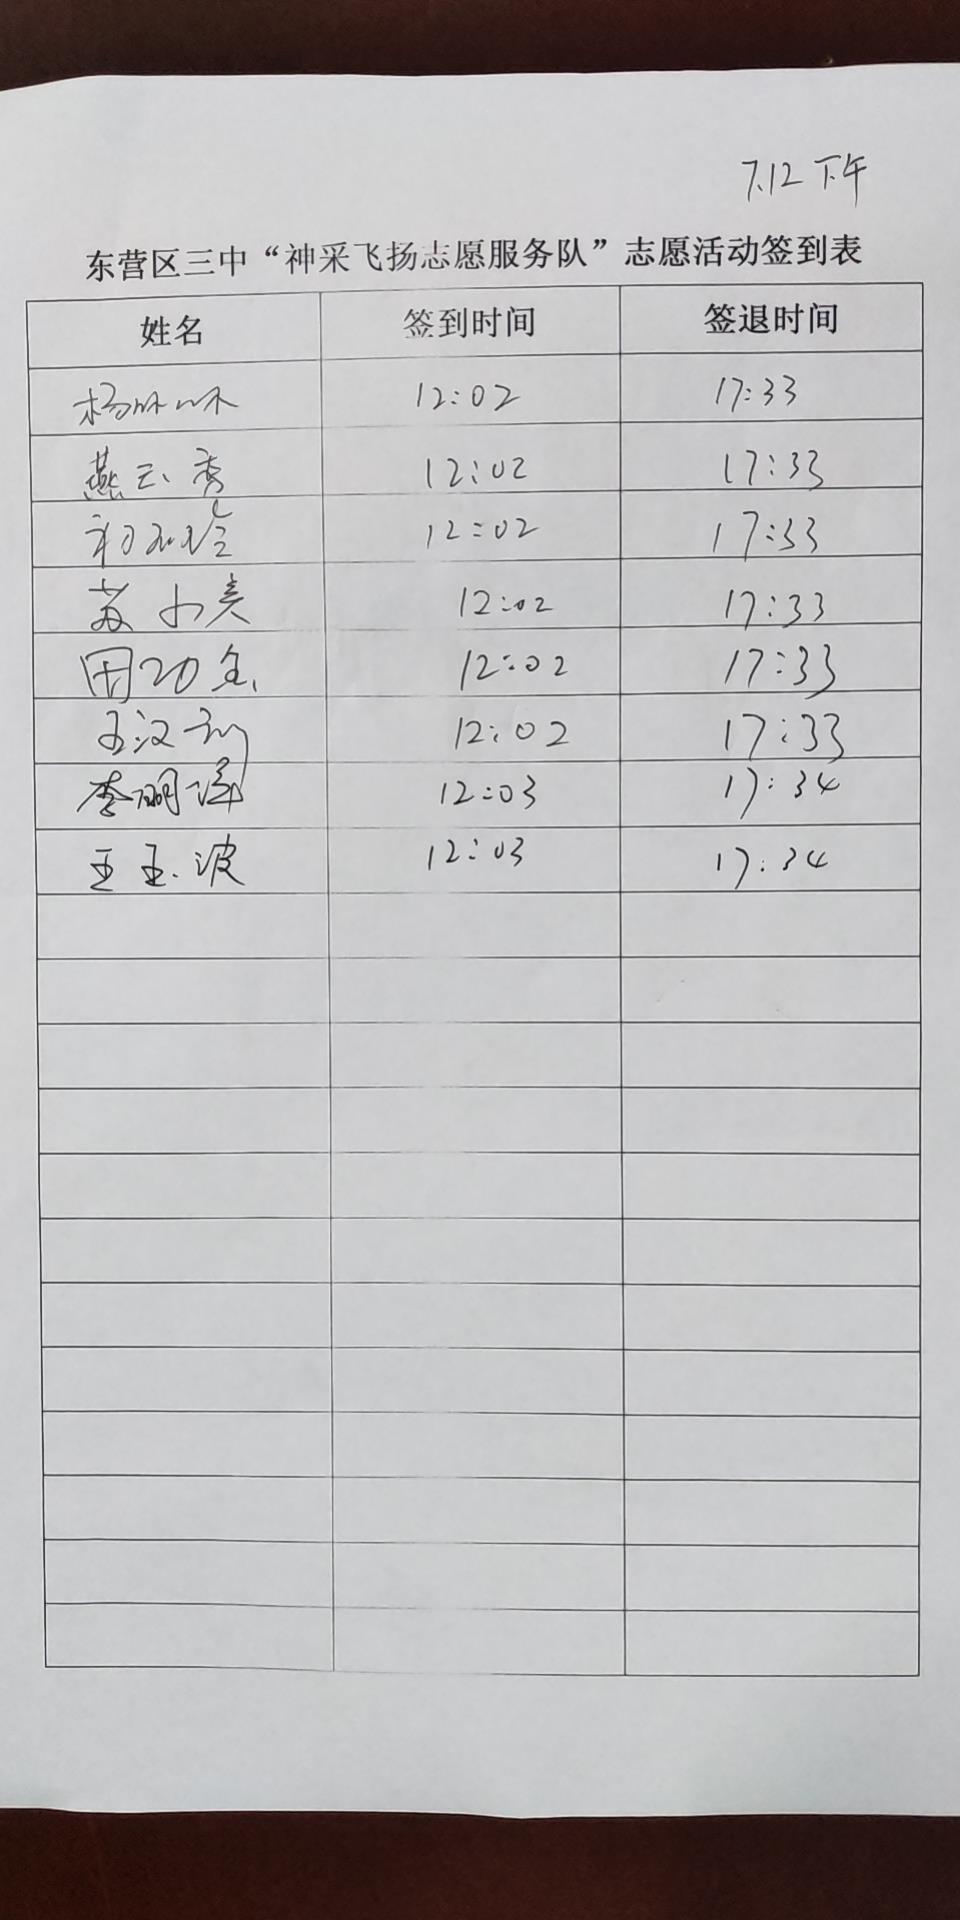 7.12 下午
东营区三中“神采飞扬志愿服务队”志愿活动签到表
姓名 签到时间 签退时间
杨 12:02 17:33
燕云秀 12:02 17:33
初 玲 12:02 17:33
苏小美 12:02 17:33
田 12:02 17:33
王汉 12:02 17:33
李明 12:03 17:34
王玉波 12:03 17:34